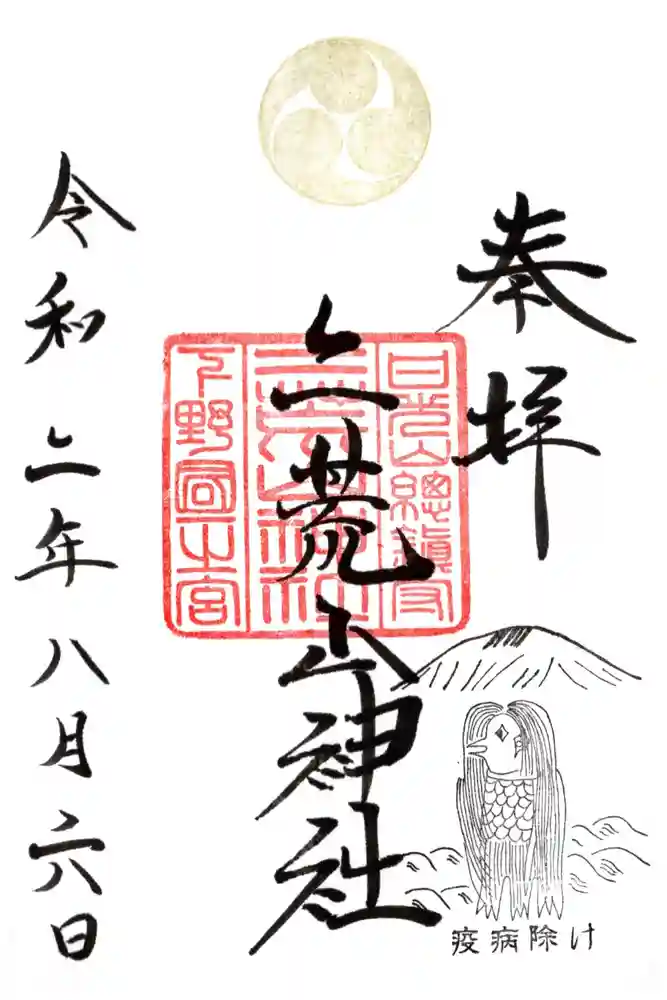 奉拝
疫病除け
日光山總鎮守
二荒山神社
下野國一之宮
二荒山神社
令和二年八月六日